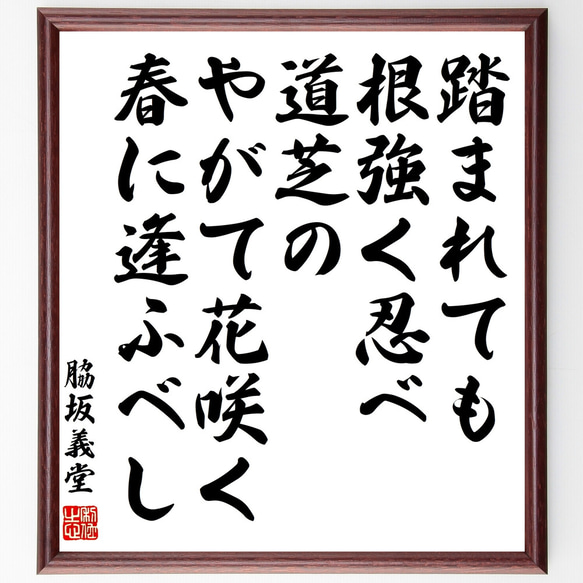 踏まれても
根強く忍べ
道芝の
やがて花咲く
春に逢ふべし
脇坂義堂